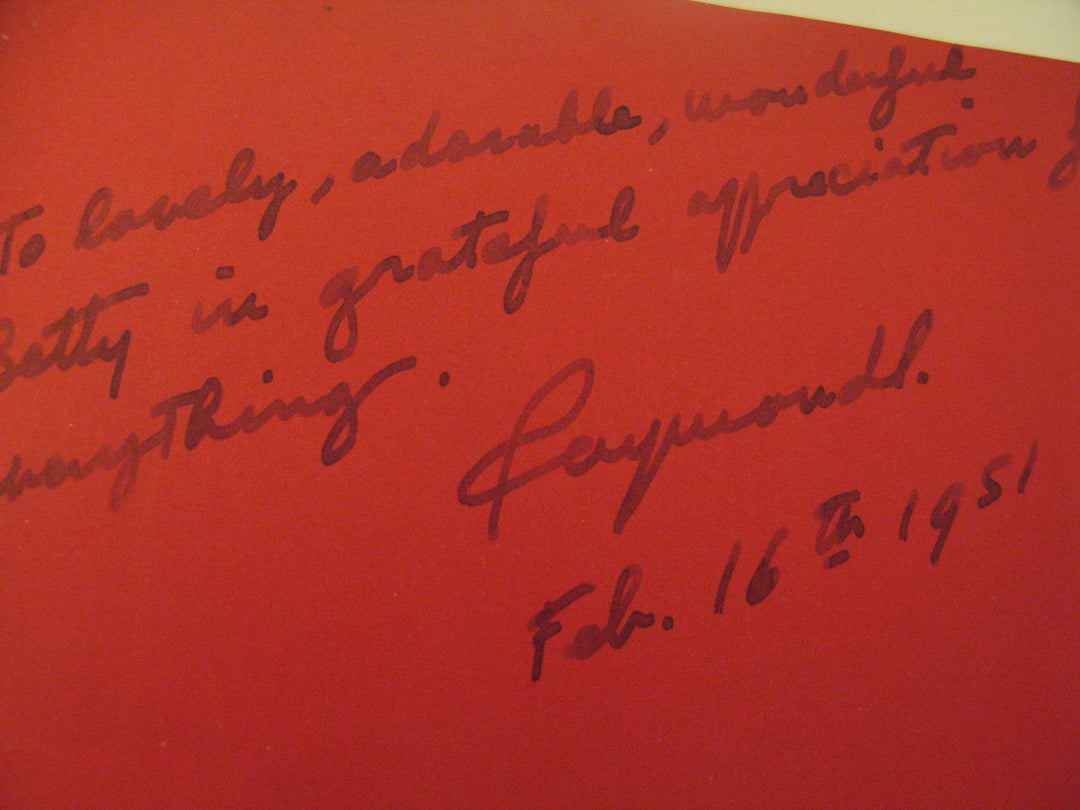 To lovely, adorable, wonderful
Betty in grateful appreciation
everything.
Raymond.
Feb. 16th 1951